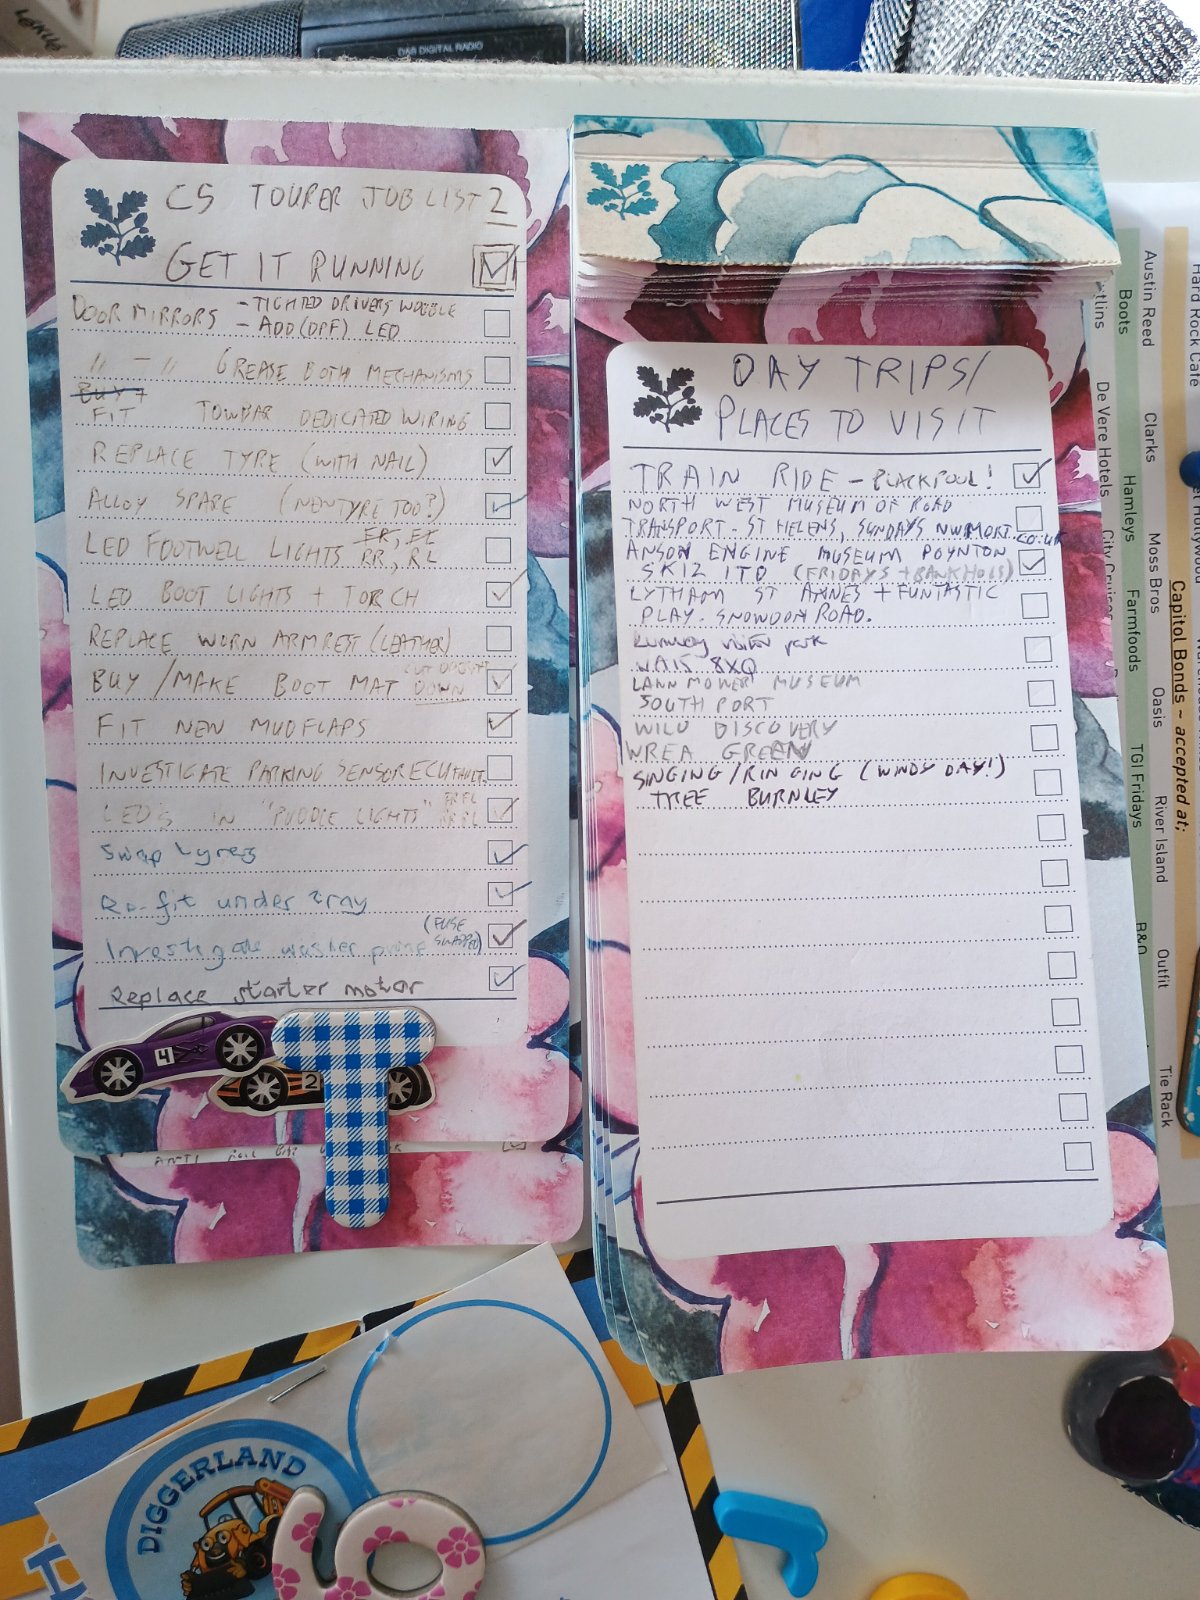 DAB DIGITAL RADIO
C5 TOURER JOB LIST 2
GET IT RUNNING
DOOR MIRRORS - TIGHTED DRIVERS WOBBLE
- ADD (DPF) LED
" - " GREASE BOTH MECHANISMS
BUY +
FIT TOWBAR DEDICATED WIRING
REPLACE TYRE (WITH NAIL)
ALLOY SPARE (NEW TYRE TOO?)
LED FOOTWELL LIGHTS FR, FL
RR, RL
LED BOOT LIGHTS + TORCH
REPLACE WORN ARMREST (LEATHER)
BUY / MAKE BOOT MAT
DOWN
FIT NEW MUDFLAPS
INVESTIGATE PARKING SENSOR ECU FAULT
LED'S IN "PUDDLE LIGHTS" FR FL
RR RL
Swap tyres
Re-fit under tray
Investigate washer pump (FUSE
SWAPPED)
Replace starter motor
4
2
ANTI ROLL BAR
DAY TRIPS/
PLACES TO VISIT
TRAIN RIDE - BLACKPOOL!
NORTH WEST MUSEUM OF ROAD
TRANSPORT. ST HELENS, SUNDAYS NWMORT.CO.UK
ANSON ENGINE MUSEUM POYNTON
SK12 1TD (FRIDAYS + BANK HOLS)
LYTHAM ST ANNES + FUNTASTIC
PLAY. SNOWDON ROAD.
park
WA15 8XQ
LAWN MOWER MUSEUM
SOUTHPORT
WILD DISCOVERY
WREA GREEN
SINGING/RINGING (WINDY DAY!)
TREE BURNLEY
Hard Rock Cafe
Austin Reed
Clarks
Moss Bros
Oasis
River Island
Outfit
Tie Rack
Capitol Bonds ~ accepted at;
Boots
Hamleys
Farmfoods
TGI Fridays
B&Q
De Vere Hotels
City Cruises
DIGGERLAND